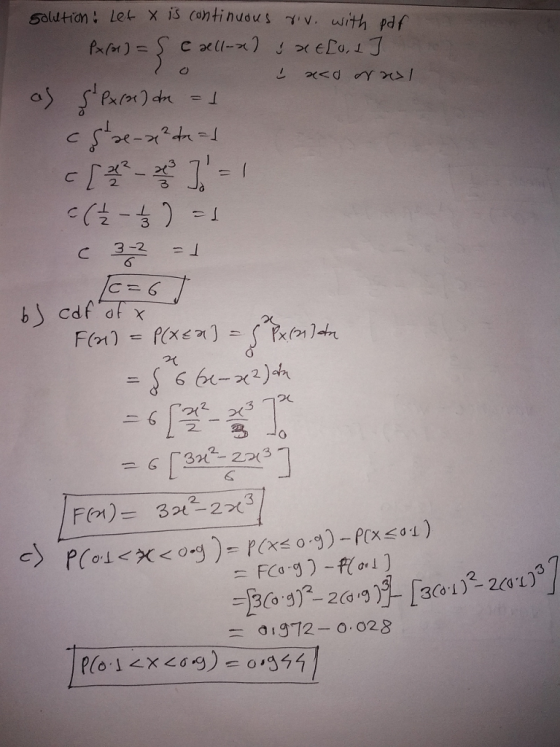 Solution: Let X is continuous r.v. with pdf
Px(x) = { c x(1-x) ; x ∈ [0,1]
0 ; x<0 or x>1
a) ∫₀¹ Px(x) dx = 1
c ∫₀¹ x - x² dx = 1
c [x²/2 - x³/3]₀¹ = 1
c (1/2 - 1/3) = 1
c (3-2)/6 = 1
c = 6
b) cdf of x
F(x) = P(X≤x) = ∫₀ˣ Px(x) dx
= ∫₀ˣ 6 (x-x²) dx
= 6 [x²/2 - x³/3]₀ˣ
= 6 [(3x²-2x³)/6]
F(x) = 3x²-2x³
c) P(0.1<X<0.9) = P(X≤0.9) - P(X≤0.1)
= F(0.9) - F(0.1)
= [3(0.9)²-2(0.9)³] - [3(0.1)²-2(0.1)³]
= 0.972 - 0.028
P(0.1<X<0.9) = 0.944